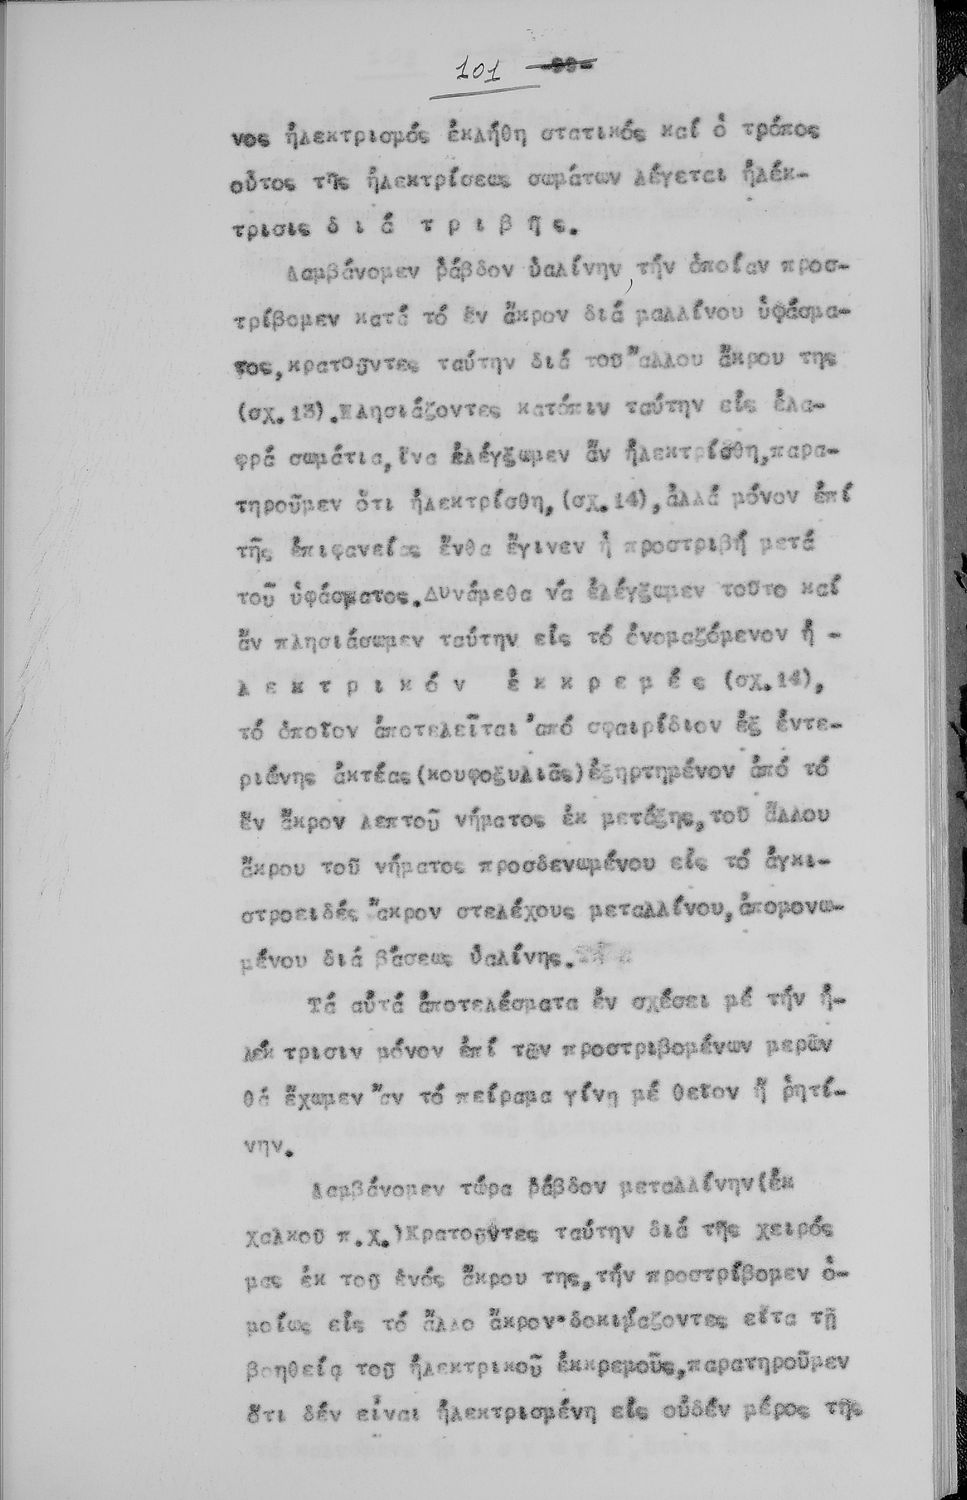 101 -99-
νος ἠλεκτρισμός ἐκλήθη στατικός καί ὁ τρόπος
οὗτος τῆς ἠλεκτρίσεως σωμάτων λέγεται ἠλέκ-
τρισις δ ι ά τ ρ ι β ῆ ς.
Λαμβάνομεν ῥάβδον ὑαλίνην, τήν ὁποίαν προσ-
τρίβομεν κατά τό ἕν ἄκρον διά μαλλίνου ὑφάσμα-
τος, κρατοῦντες ταύτην διά τοῦ ἄλλου ἄκρου της
(σχ. 13). Πλησιάζοντες κατόπιν ταύτην εἰς ἐλα-
φρά σωμάτια, ἵνα ἐλέγξωμεν ἄν ἠλεκτρίσθη, παρα-
τηροῦμεν ὅτι ἠλεκτρίσθη, (σχ. 14), ἀλλά μόνον ἐπί
τῆς ἐπιφανείας ἔνθα ἔγινεν ἡ προστριβή μετά
τοῦ ὑφάσματος. Δυνάμεθα νά ἐλέγξωμεν τοῦτο καί
ἄν πλησιάσωμεν ταύτην εἰς τό ὀνομαζόμενον ἠ -
λ ε κ τ ρ ι κ ό ν ἐ κ κ ρ ε μ έ ς (σχ. 14),
τό ὁποῖον ἀποτελεῖται ἀπό σφαιρίδιον ἐξ ἐντε-
ριώνης ἀκτέας (κουφοξυλιᾶς) ἐξηρτημένον ἀπό τό
ἕν ἄκρον λεπτοῦ νήματος ἐκ μετάξης, τοῦ ἄλλου
ἄκρου τοῦ νήματος προσδενωμένου εἰς τό ἀγκι-
στροειδές ἄκρον στελέχους μεταλλίνου, ἀπομονω-
μένου διά βάσεως ὑαλίνης.
Τά αὐτά ἀποτελέσματα ἐν σχέσει μέ τήν ἠ-
λέκτρισιν μόνον ἐπί τῶν προστριβομένων μερῶν
θά ἔχωμεν ἄν τό πείραμα γίνῃ μέ θεῖον ἤ ῥητί-
νην.
Λαμβάνομεν τώρα ῥάβδον μεταλλίνην (ἐκ
χαλκοῦ π.χ.) Κρατοῦντες ταύτην διά τῆς χειρός
μας ἐκ τοῦ ἑνός ἄκρου της, τήν προστρίβομεν ὁ-
μοίως εἰς τό ἄλλο ἄκρον· δοκιμάζοντες εἶτα τῇ
βοηθείᾳ τοῦ ἠλεκτρικοῦ ἐκκρεμοῦς, παρατηροῦμεν
ὅτι δέν εἶναι ἠλεκτρισμένη εἰς οὐδέν μέρος τῆς